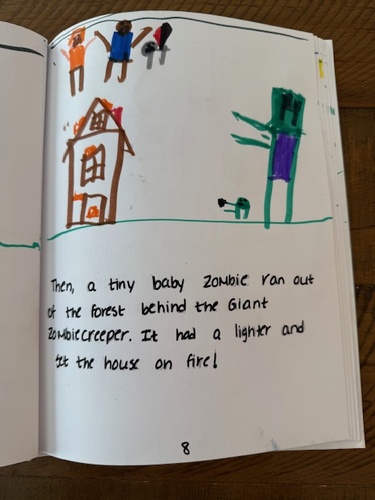 Then, a tiny baby zombie ran out
of the forest behind the Giant
Zombiecreeper. It had a lighter and
set the house on fire!
8